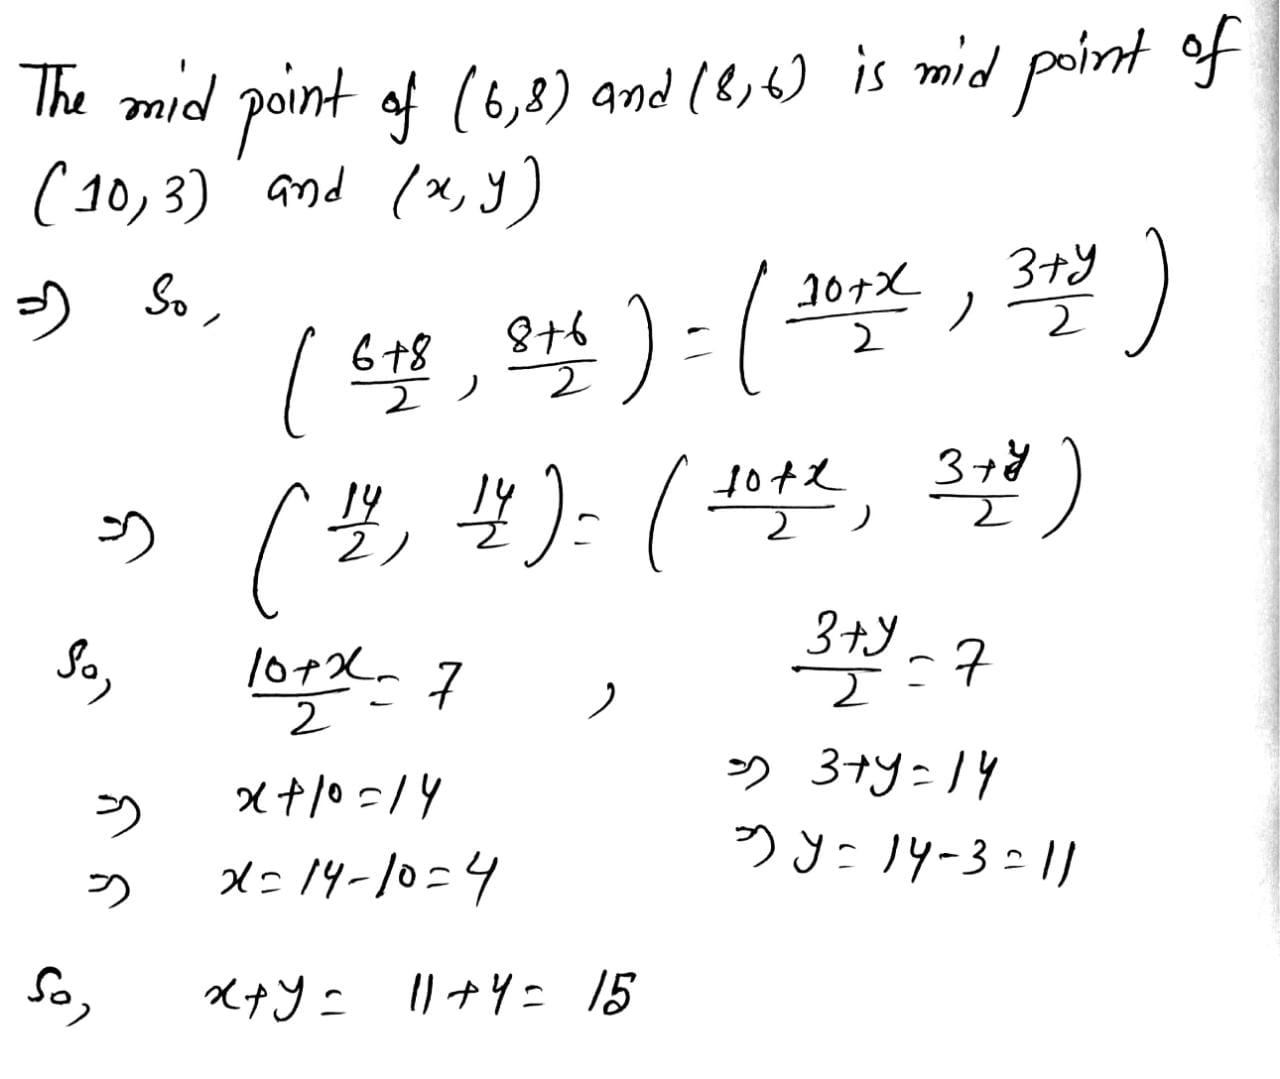 The mid point of (6,8) and (8,6) is mid point of
(10,3) and (x,y)
⇒ So, ( 6+8/2 , 8+6/2 ) = ( 10+x/2 , 3+y/2 )
⇒ ( 14/2, 14/2 ) = ( 10+x/2, 3+y/2 )
So, 10+x/2 = 7 , 3+y/2 = 7
⇒ x+10=14 ⇒ 3+y=14
⇒ x=14-10=4 ⇒ y=14-3=11
So, x+y= 11+4= 15